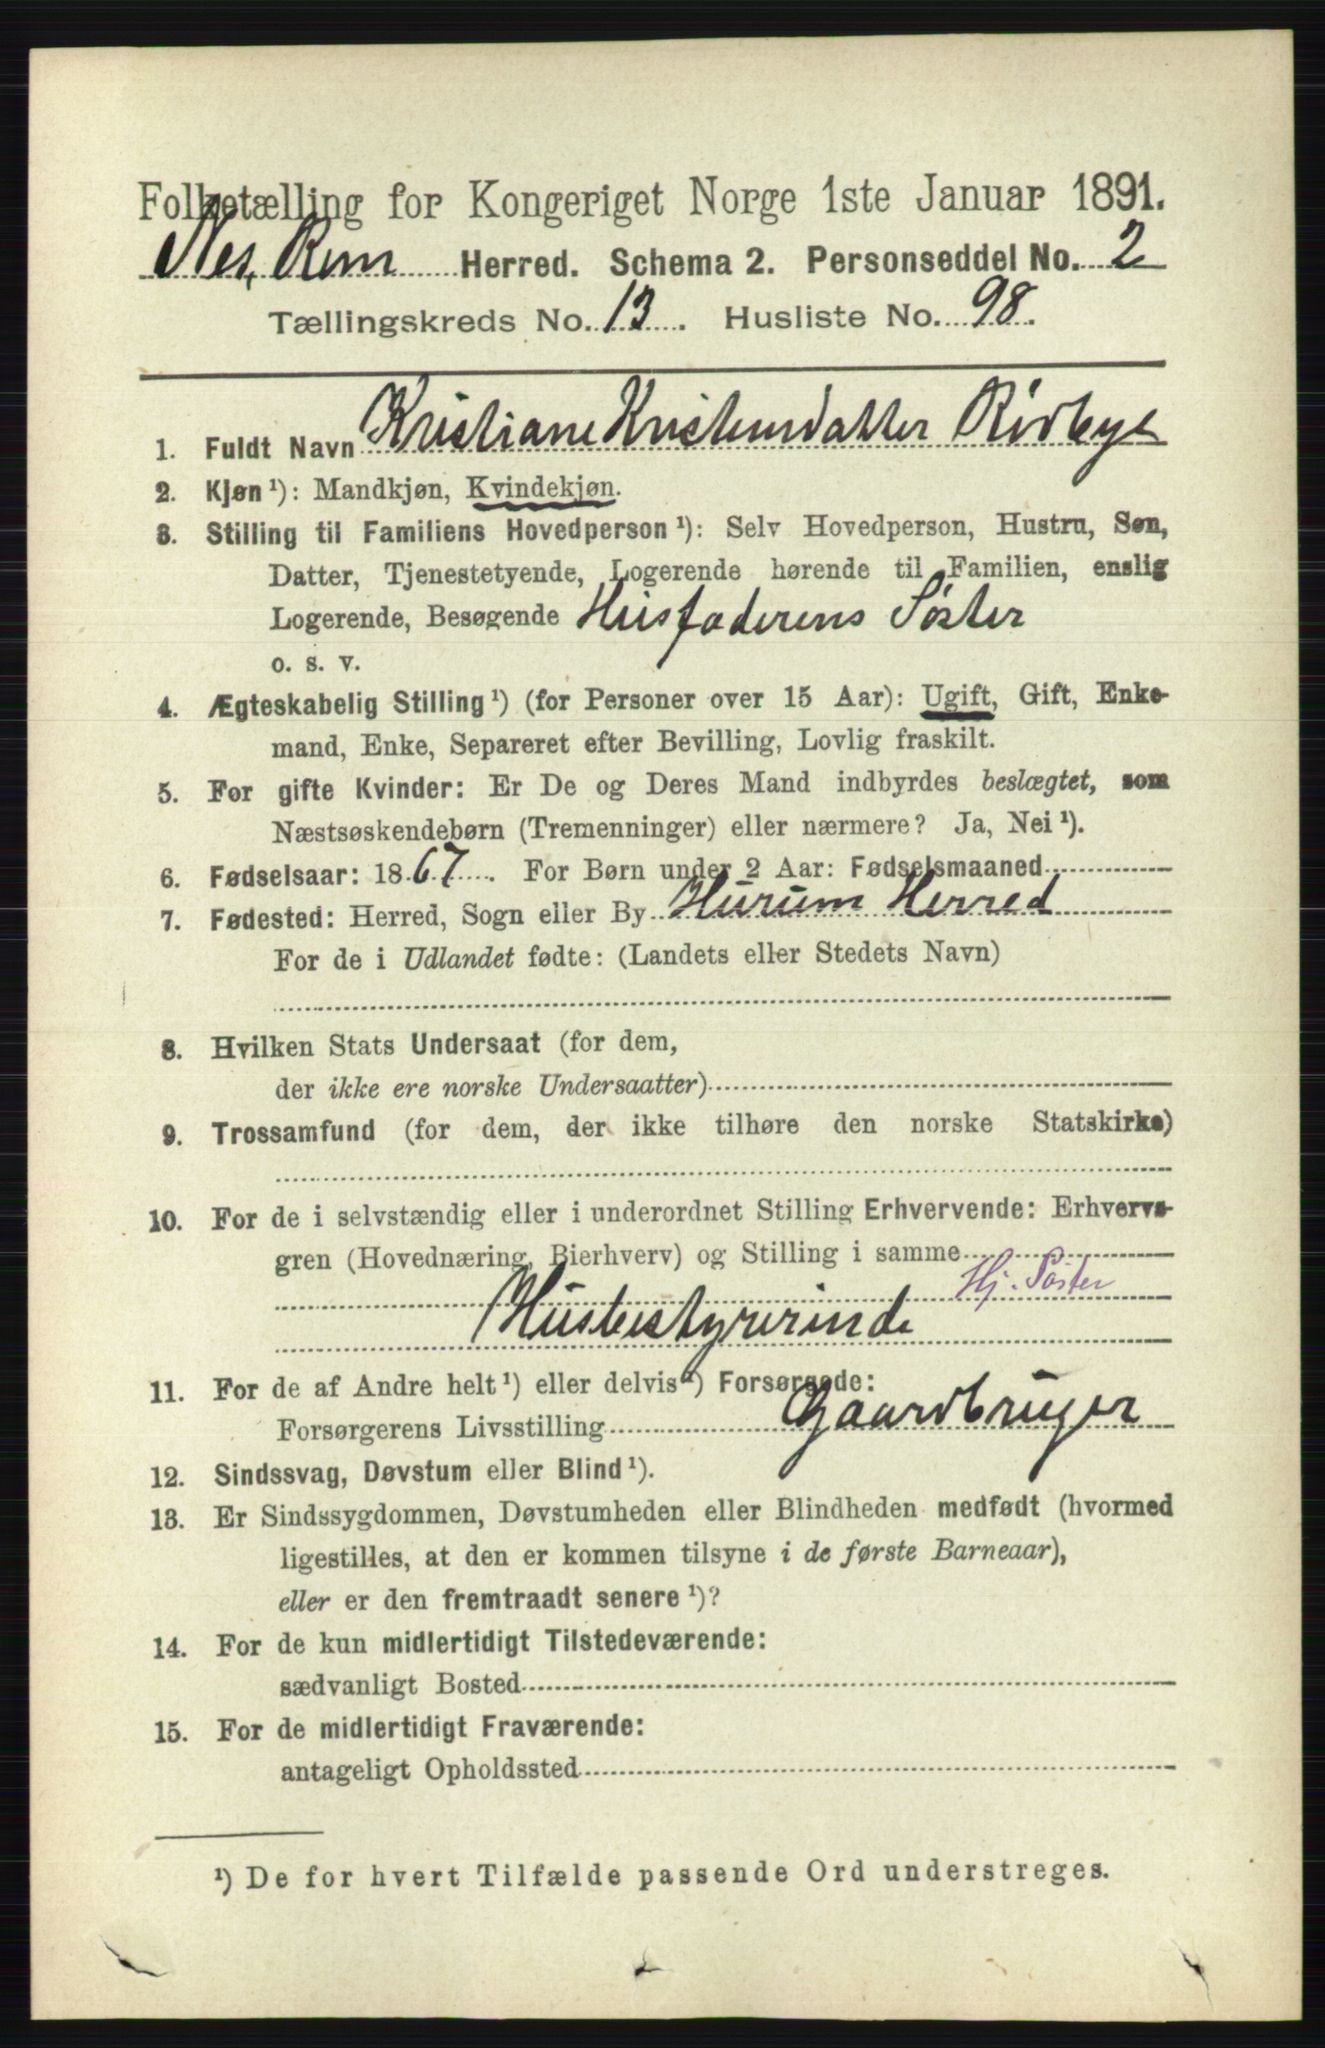 Folketælling for Kongeriget Norge 1ste Januar 1891.
Nes, Rom Herred. Schema 2. Personseddel No. 2
Tællingskreds No. 13. Husliste No. 98.
1. Fuldt Navn Kristiane Kristensdatter Rödbye
2. Kjøn ¹): Mandkjøn, Kvindekjøn.
3. Stilling til Familiens Hovedperson ¹): Selv Hovedperson, Hustru, Søn,
Datter, Tjenestetyende, Logerende hørende til Familien, enslig
Logerende, Besøgende Husfaderens Söster
o. s. v.
4. Ægteskabelig Stilling ¹) (for Personer over 15 Aar): Ugift, Gift, Enke-
mand, Enke, Separeret efter Bevilling, Lovlig fraskilt.
5. For gifte Kvinder: Er De og Deres Mand indbyrdes beslægtet, som
Næstsøskendebørn (Tremenninger) eller nærmere? Ja, Nei ¹).
6. Fødselsaar: 1867. For Børn under 2 Aar: Fødselsmaaned
7. Fødested: Herred, Sogn eller By Hurum Herred
For de i Udlandet fødte: (Landets eller Stedets Navn)
8. Hvilken Stats Undersaat (for dem,
der ikke ere norske Undersaatter)
9. Trossamfund (for dem, der ikke tilhøre den norske Statskirke)
10. For de i selvstændig eller i underordnet Stilling Erhvervende: Erhvervs-
gren (Hovednæring, Bierhverv) og Stilling i samme
Hj. Söster
Husbestyrerinde
11. For de af Andre helt ¹) eller delvis ¹) Forsørgede:
Forsørgerens Livsstilling Gaardbruger
12. Sindssvag, Døvstum eller Blind ¹).
13. Er Sindssygdommen, Døvstumheden eller Blindheden medfødt (hvormed
ligestilles, at den er kommen tilsyne i de første Barneaar),
eller er den fremtraadt senere ¹)?
14. For de kun midlertidigt Tilstedeværende:
sædvanligt Bosted
15. For de midlertidigt Fraværende:
antageligt Opholdssted
¹) De for hvert Tilfælde passende Ord understreges.